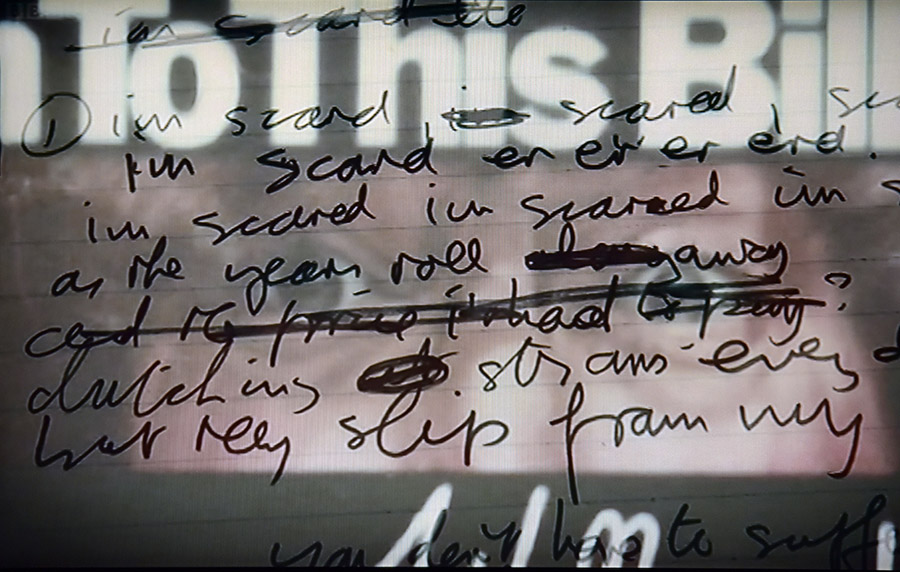 To This Bil
im scared
① im scard, scared, sc
im scard er er er erd.
im scared im scared im s
as the years roll away
the price i had to pay?
clutching straws every d
but they slip from my
you don't have to suff